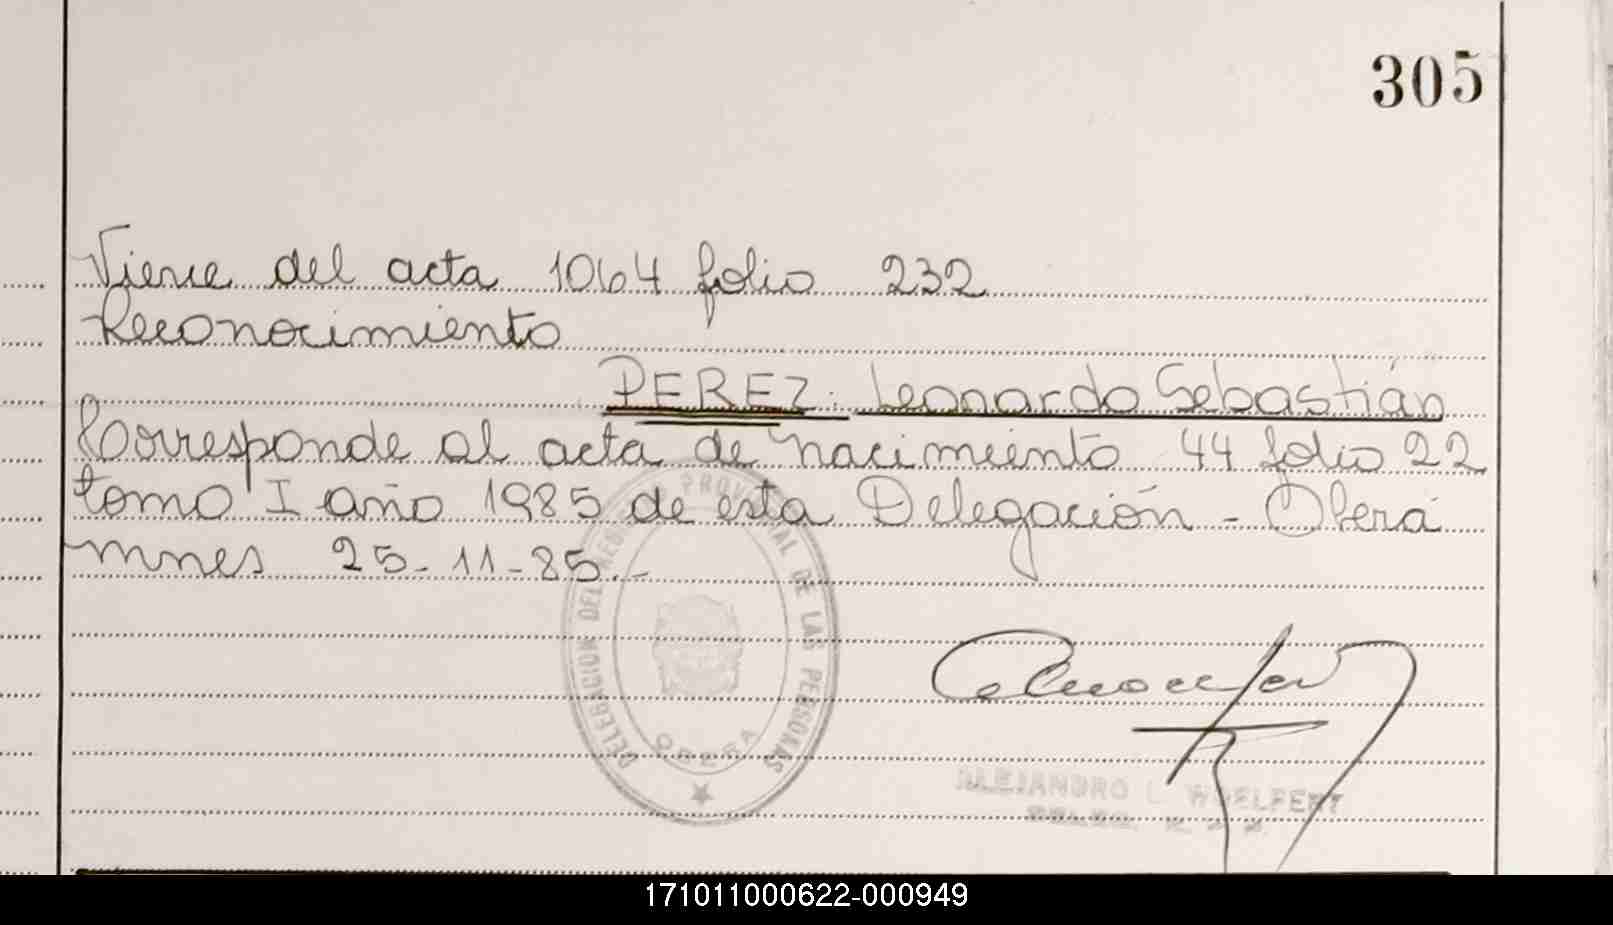 305
Viene del acta 1064 folio 232
Reconocimiento
PEREZ: Leonardo Sebastián
Corresponde al acta de nacimiento 44 folio 22
tomo I año 1985 de esta Delegación - Oberá
mnes 25-11-85.-
DELEGACION DEL REGISTRO PROVINCIAL DE LAS PERSONAS
OBERA
ALEJANDRO L. WOELFERT
171011000622-000949